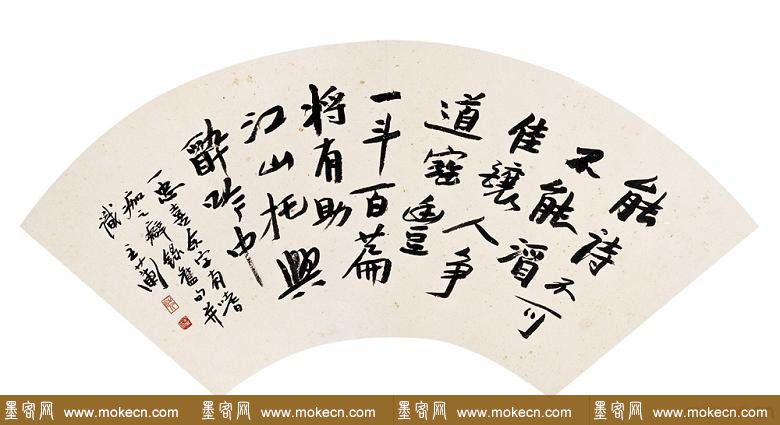 能詩不可
不能酒
佳釀人争
道豐
一斗百篇
将有助
江山托興
醉吟中
一忠喜余字有嗜
痂之癖錄舊句并
識
墨客网 www.mokecn.com 墨客网 www.mokecn.com 墨客网 www.mokecn.com 墨客网 www.mokecn.com